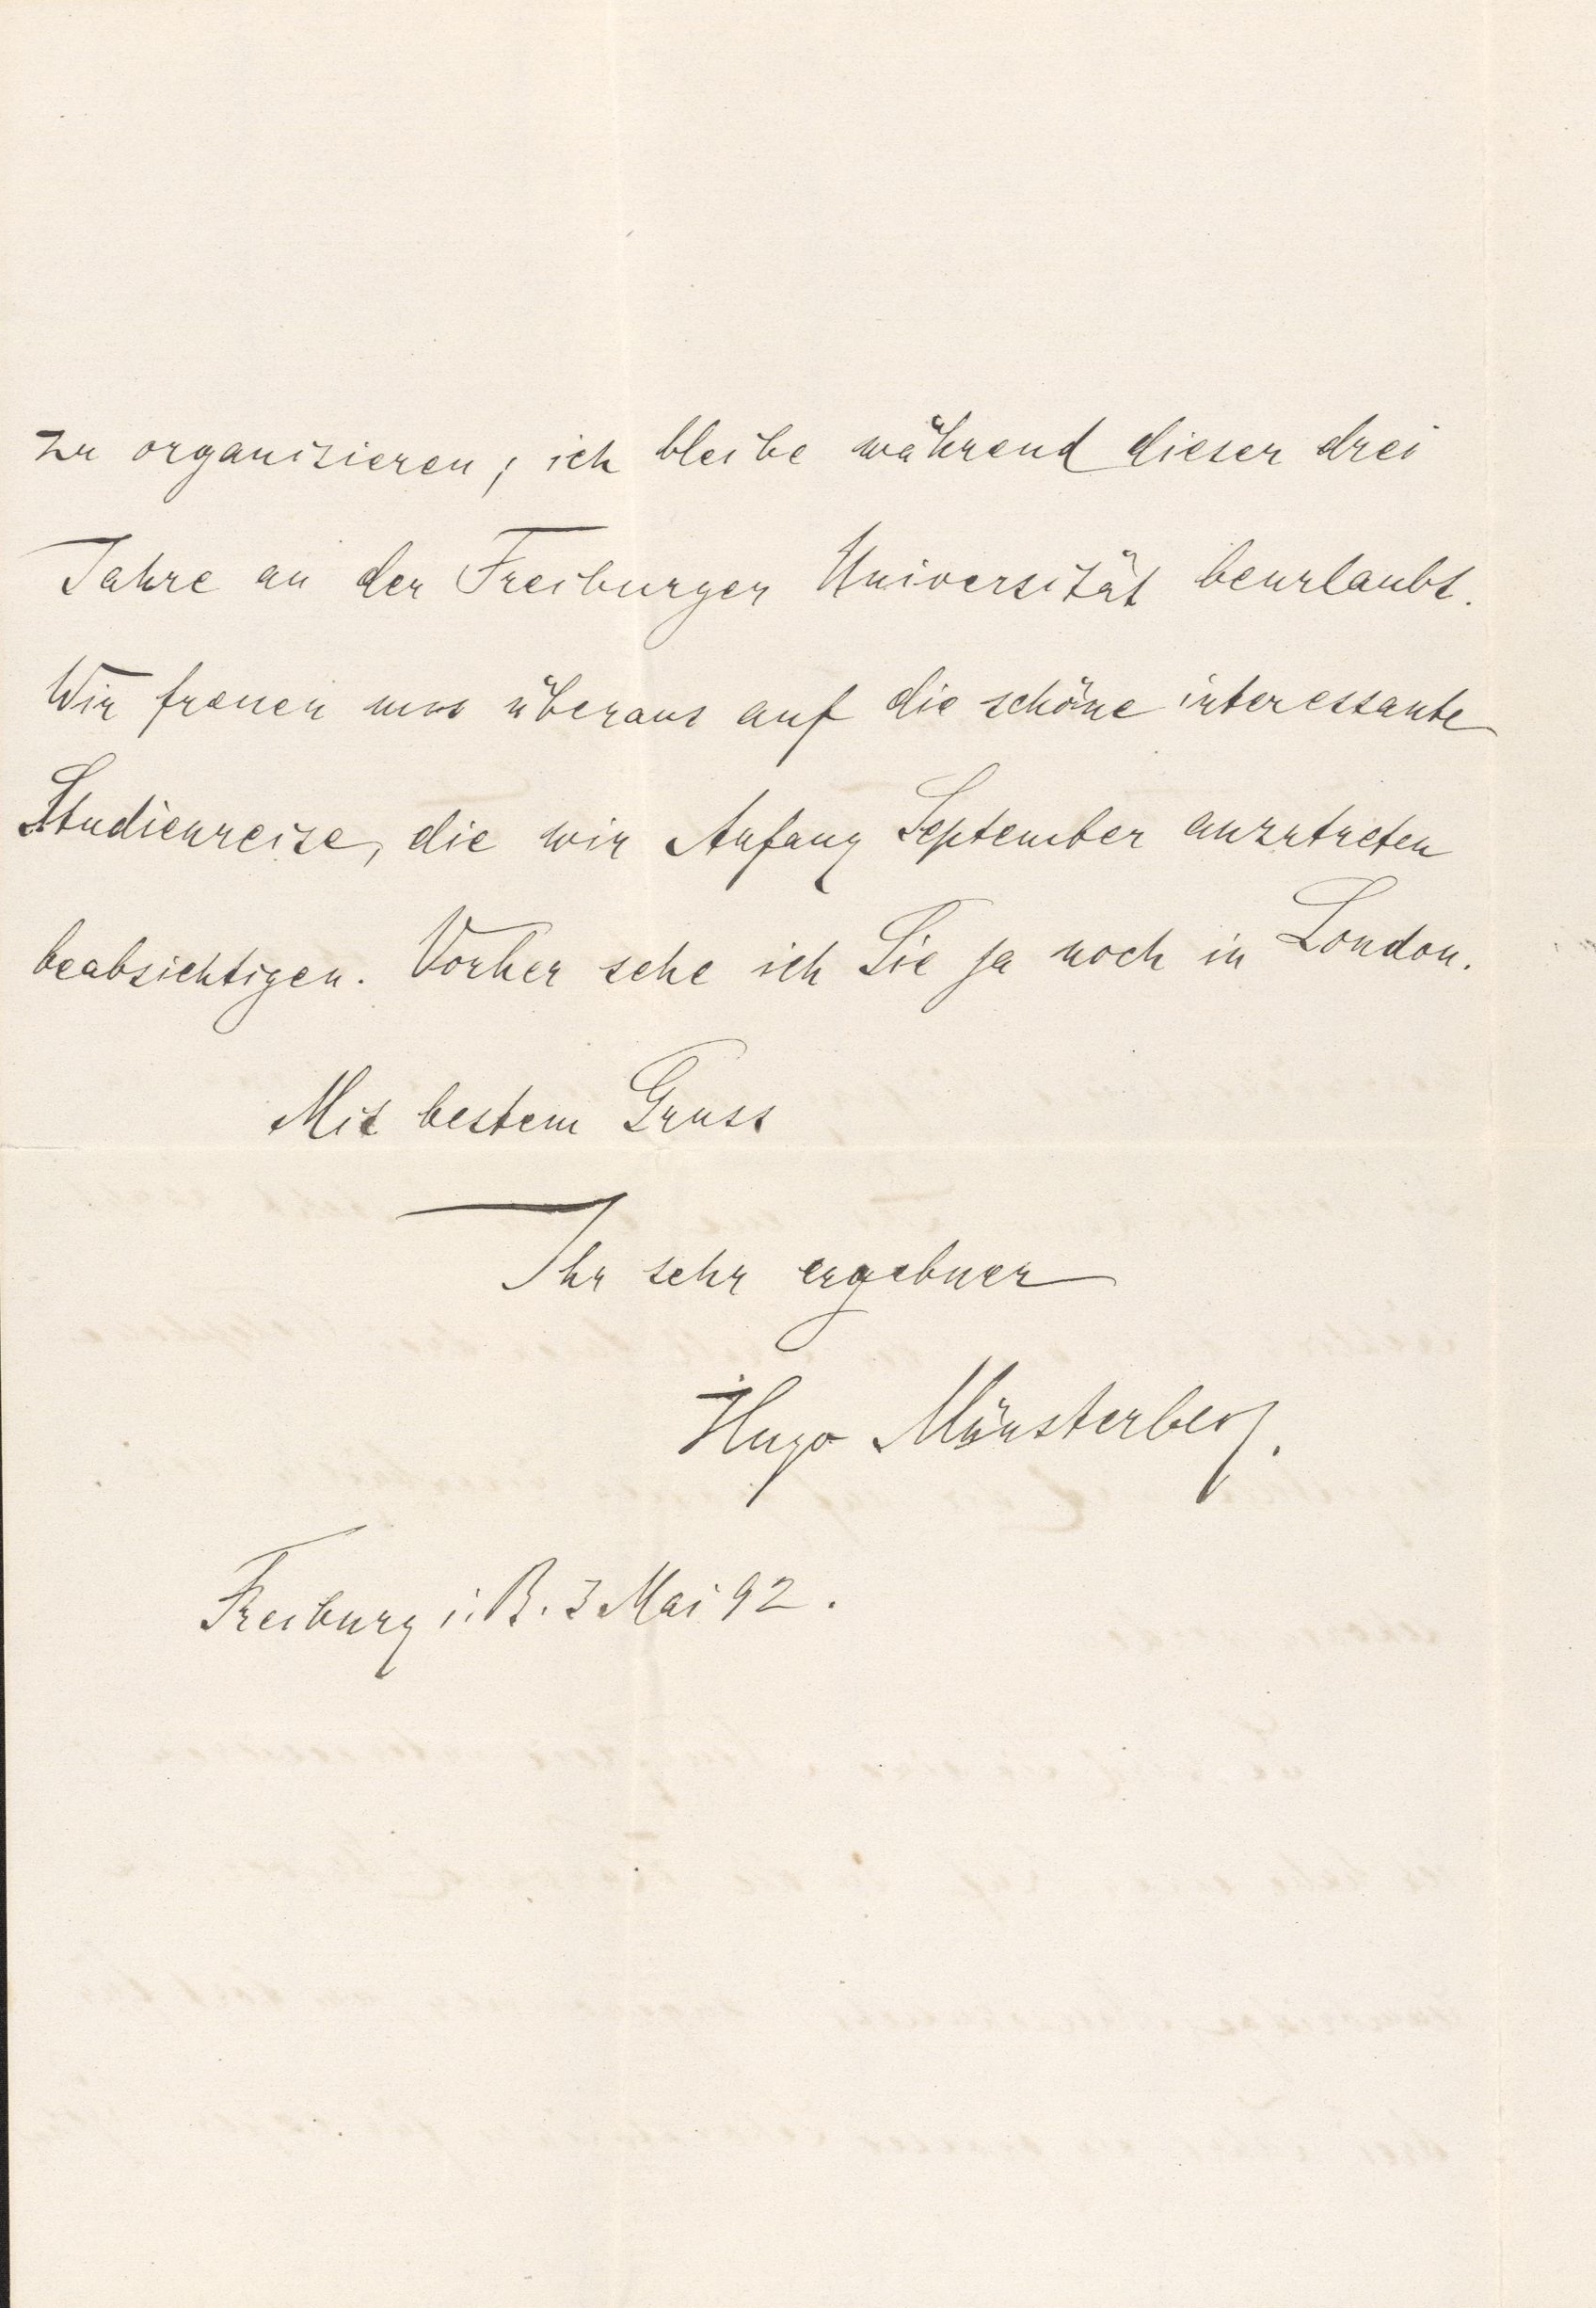 zu organisieren; ich bleibe während dieser drei
Jahre an der Freiburger Universität beurlaubt.
Wir freuen uns überaus auf die schöne interessante
Studienreise, die wir Anfang September anzutreten
beabsichtigen. Vorher sehe ich Sie ja noch in London.
Mit bestem Gruss
Ihr sehr ergebner
Hugo Münsterberg.
Freiburg i. B. 3 Mai 92.